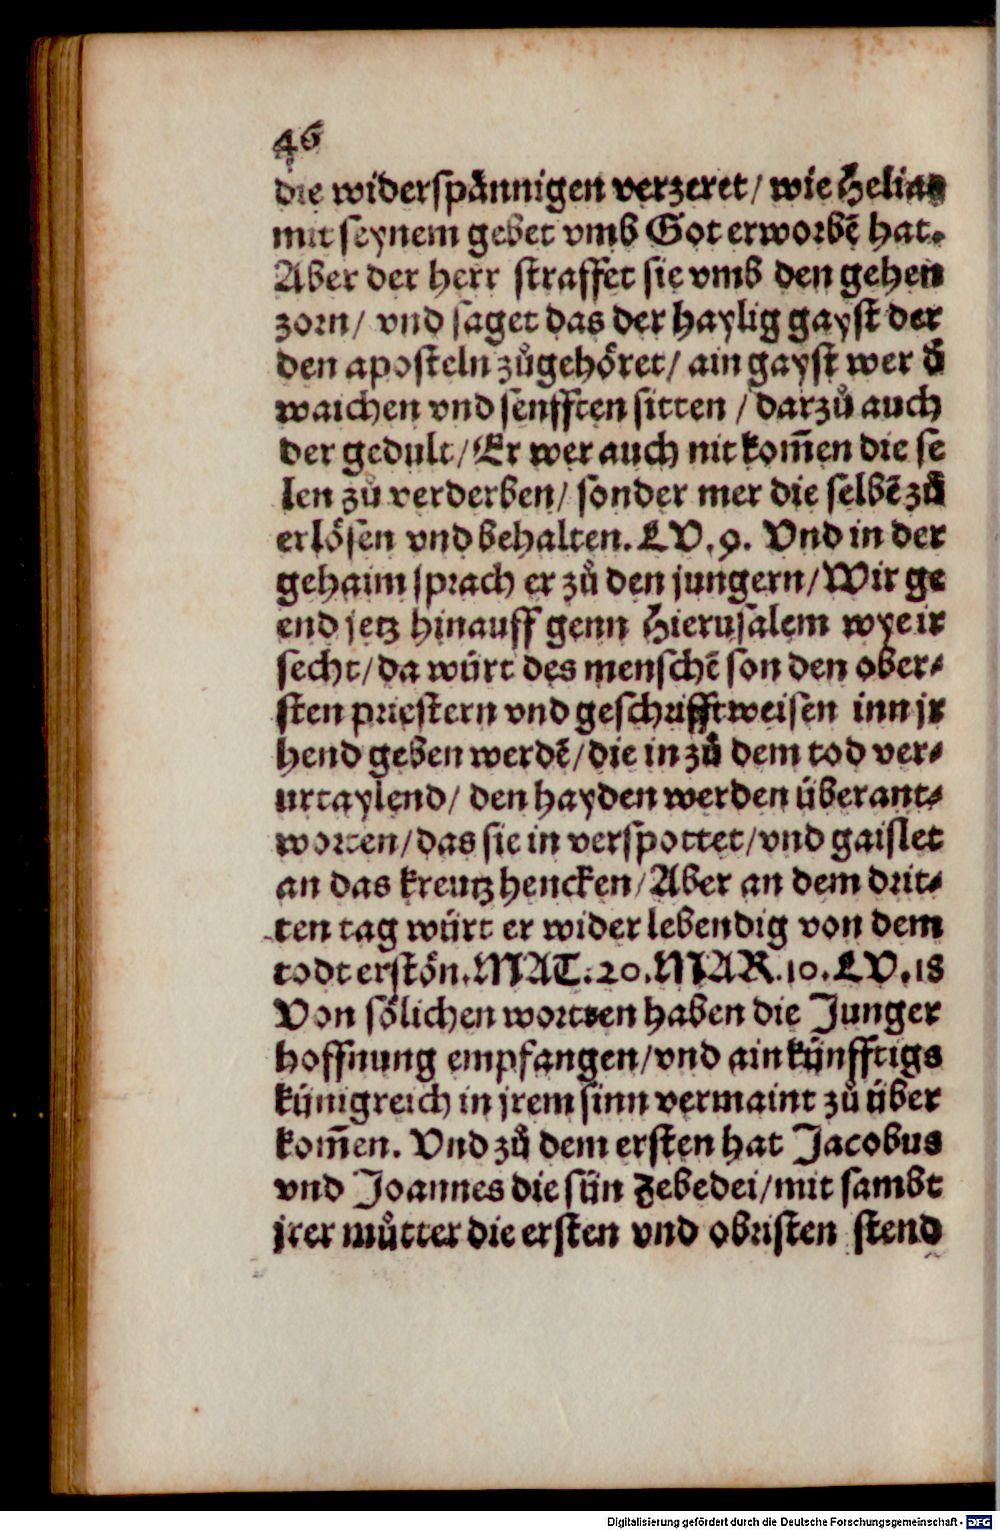 46
die widerspännigen verzeret/ wie Helias
mit seynem gebet vmb Got erworbē hat.
Aber der herr straffet sie vmb den gehen
zorn/ vnd saget das der haylig gayst der
den aposteln zůgehöret/ ain gayst wer d̄
waichen vnd senfften sitten / darzů auch
der gedult/ Er wer auch nit kom̄en die se
len zů verderben/ sonder mer die selbē zů
erlösen vnd behalten. LV. 9. Vnd in der
gehaim sprach er zů den jungern/ Wir ge
end jetz hinauff genn Hierusalem wye ir
secht/ da würt des menschē son den ober⸗
sten priestern vnd geschrifftweisen inn jr
hend geben werdē/ die in zů dem tod ver⸗
urtaylend/ den hayden werden überant⸗
worten/ das sie in verspottet/ vnd gaislet
an das kreutz hencken/ Aber an dem drit⸗
ten tag würt er wider lebendig von dem
todt erstön. MAT. 20. MAR. 10. LV. 18
Von sölichen wortten haben die Junger
hoffnung empfangen/ vnd ain künfftigs
künigreich in jrem sinn vermaint zů über
kom̄en. Vnd zů dem ersten hat Jacobus
vnd Joannes die sün Zebedei/ mit sambt
jrer můtter die ersten vnd obristen stend
Digitalisierung gefördert durch die Deutsche Forschungsgemeinschaft - DFG